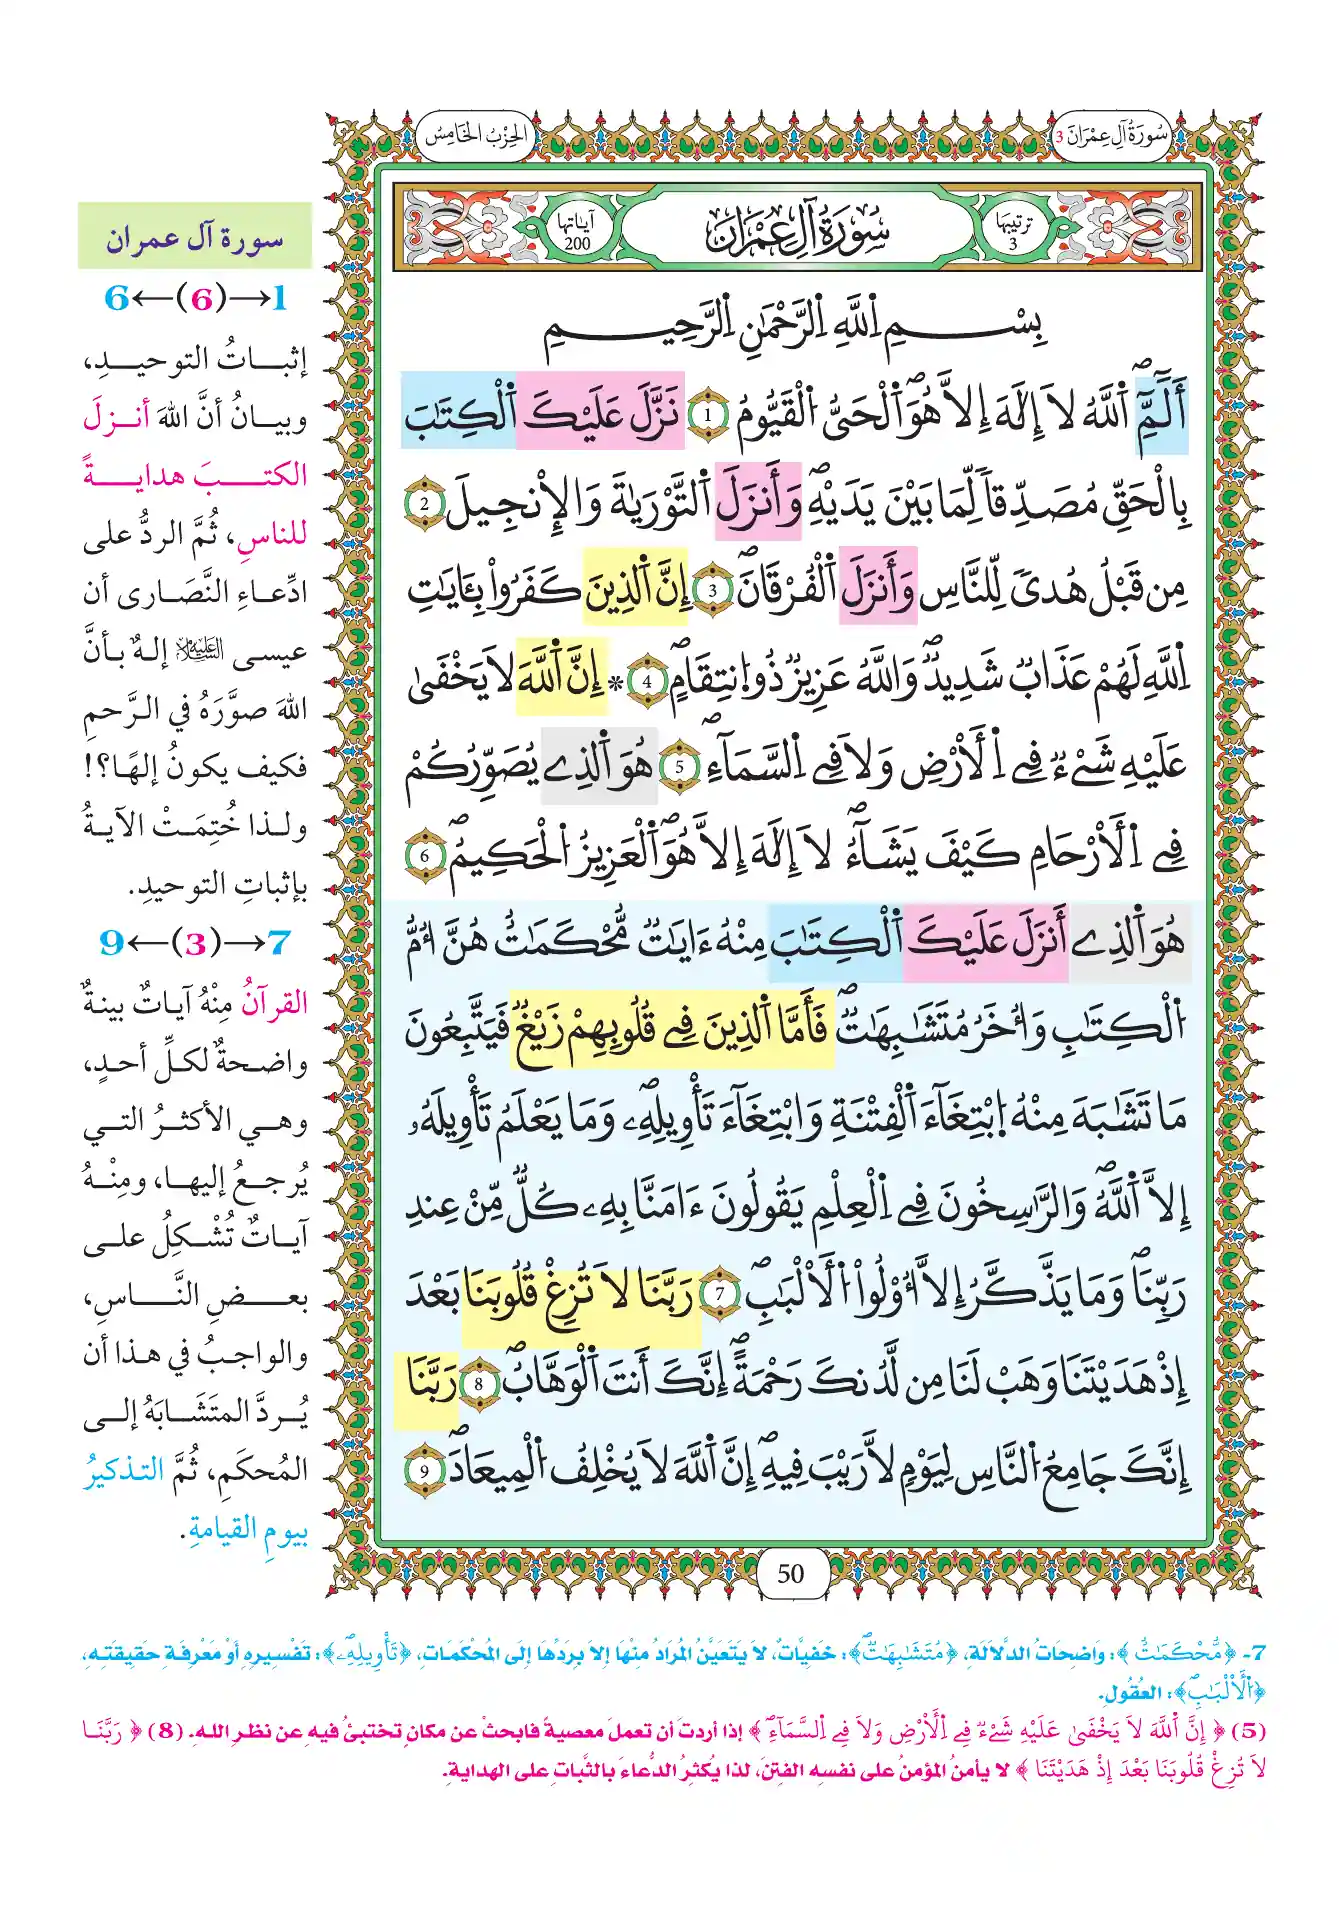 سُورَةُ آلِ عِمْرَانَ 3
الحِزْبُ الخَامِسُ
ترتيبها
3
سُورَةُ آلِ عِمْرَانَ
آياتها
200
بِسْمِ اِ۬للَّهِ اِ۬لرَّحْمَٰنِ اِ۬لرَّحِيمِ
أَلَٓمِّٓۖ اَ۬للَّهُ لَا إِلَٰهَ إِلَّا هُوَۖ اَ۬لْحَيُّ اُ۬لْقَيُّومُ 1 نَزَّلَ عَلَيْكَ اَ۬لْكِتَٰبَ
بِالْحَقِّ مُصَدِّقاٗ لِّمَا بَيْنَ يَدَيْهِۖ وَأَنزَلَ اَ۬لتَّوْرَيٰةَ وَالْإِنجِيلَ 2
مِن قَبْلُ هُدىٗ لِّلنَّاسِ وَأَنزَلَ اَ۬لْفُرْقَانَۖ 3 إِنَّ اَ۬لذِينَ كَفَرُواْ بِـَٔايَٰتِ
اِ۬للَّهِ لَهُمْ عَذَابٞ شَدِيدٞۖ وَاللَّهُ عَزِيزٞ ذُو اُ۪نتِقَامٍۖ 4 * إِنَّ اَ۬للَّهَ لَا يَخْفَىٰ
عَلَيْهِ شَےْءٞ فِے اِ۬لْأَرْضِ وَلَا فِے اِ۬لسَّمَآءِۖ 5 هُوَ اَ۬لذِے يُصَوِّرُكُمْ
فِے اِ۬لْأَرْحَامِ كَيْفَ يَشَآءُۖ لَا إِلَٰهَ إِلَّا هُوَۖ اَ۬لْعَزِيزُ اُ۬لْحَكِيمُۖ 6
هُوَ اَ۬لذِے أَنزَلَ عَلَيْكَ اَ۬لْكِتَٰبَ مِنْهُ ءَايَٰتٞ مُّحْكَمَٰتٌ هُنَّ أُمُّ
اُ۬لْكِتَٰبِ وَأُخَرُ مُتَشَٰبِهَٰتٞۖ فَأَمَّا اَ۬لذِينَ فِے قُلُوبِهِمْ زَيْغٞ فَيَتَّبِعُونَ
مَا تَشَٰبَهَ مِنْهُ اُ۪بْتِغَآءَ اَ۬لْفِتْنَةِ وَابْتِغَآءَ تَأْوِيلِهِۦۖ وَمَا يَعْلَمُ تَأْوِيلَهُۥ
إِلَّا اَ۬للَّهُۖ وَالرَّٰسِخُونَ فِے اِ۬لْعِلْمِ يَقُولُونَ ءَامَنَّا بِهِۦ كُلّٞ مِّنْ عِندِ
رَبِّنَاۖ وَمَا يَذَّكَّرُ إِلَّا أُوْلُواْ اُ۬لْأَلْبَٰبِۖ 7 رَبَّنَا لَا تُزِغْ قُلُوبَنَا بَعْدَ
إِذْ هَدَيْتَنَا وَهَبْ لَنَا مِن لَّدُنكَ رَحْمَةًۖ إِنَّكَ أَنتَ اَ۬لْوَهَّابُۖ 8 رَبَّنَا
إِنَّكَ جَامِعُ اُ۬لنَّاسِ لِيَوْمٖ لَّا رَيْبَ فِيهِۖ إِنَّ اَ۬للَّهَ لَا يُخْلِفُ اُ۬لْمِيعَادَۖ 9
50
سورة آل عمران
1→(6)←6
إثباتُ التوحيدِ،
وبيانُ أنَّ اللهَ أنزلَ
الكتبَ هدايةً
للناسِ، ثُمَّ الردُّ على
ادِّعاءِ النَّصَارى أن
عيسى عليه السلام إلهٌ بأنَّ
اللهَ صوَّرَهُ في الرَّحمِ
فكيف يكونُ إلهًا؟!
ولذا خُتِمَتْ الآيةُ
بإثباتِ التوحيدِ.
7→(3)←9
القرآنُ مِنْهُ آياتٌ بينةٌ
واضحةٌ لكلِّ أحدٍ،
وهي الأكثرُ التي
يُرجعُ إليها، ومِنْهُ
آياتٌ تُشْكِلُ على
بعضِ النَّاسِ،
والواجبُ في هذا أن
يُردَّ المتَشَابَهُ إلى
المُحكَمِ، ثُمَّ التذكيرُ
بيومِ القيامةِ.
7- ﴿مُّحْكَمَٰتٌ﴾: وَاضِحَاتُ الدَّلَالَةِ، ﴿مُتَشَٰبِهَٰتٞۖ﴾: خَفِيَّاتٌ، لَا يَتَعَيَّنُ المُرَادُ مِنْهَا إِلَّا بِرَدِّهَا إِلَى المُحْكَمَاتِ، ﴿تَأْوِيلِهِۦۖ﴾: تَفْسِيرِهِ أَوْ مَعْرِفَةِ حَقِيقَتِهِ،
﴿اُ۬لْأَلْبَٰبِۖ﴾: العُقُولِ.
(5) ﴿إِنَّ اَ۬للَّهَ لَا يَخْفَىٰ عَلَيْهِ شَےْءٞ فِے اِ۬لْأَرْضِ وَلَا فِے اِ۬لسَّمَآءِۖ﴾ إذا أردتَ أن تعملَ معصيةً فابحثْ عن مكانٍ تختبئُ فيه عن نظرِ اللهِ. (8) ﴿رَبَّنَا
لَا تُزِغْ قُلُوبَنَا بَعْدَ إِذْ هَدَيْتَنَا﴾ لا يأمنُ المؤمنُ على نفسِه الفتنَ، لذا يُكثرُ الدُّعاءَ بالثَّباتِ على الهدايةِ.